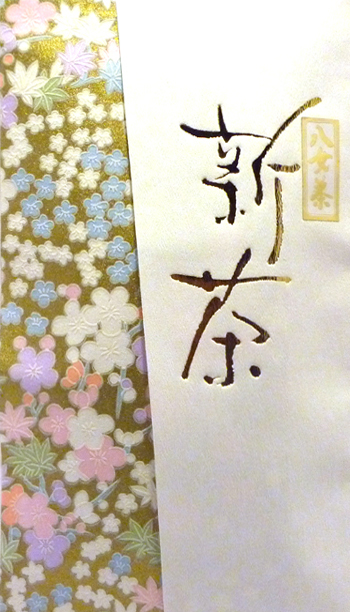 八女茶
新茶